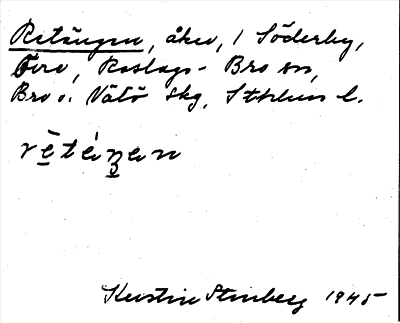 Retängen, åker, / Söderby,
Övre, Roslags-Bro sn,
Bro o. Vätö skg, Sthlms l.
rètäŋen
Kerstin Stenberg 1945